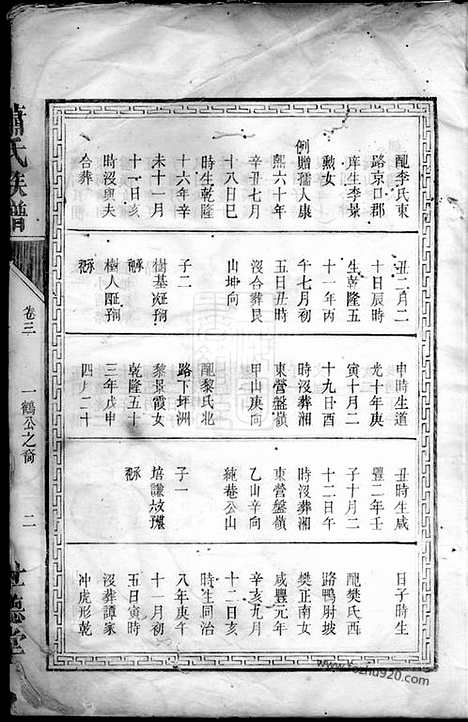 配李氏東
路京口郡
庠生李景
勳女
例贈孺人康
熙六十年
辛丑七月
十八日巳
時生乾隆
十六年辛
未十一月
十一日亥
時沒與夫
合葬
丑二月二
十日辰時
生乾隆五
十一年丙
午七月初
五日丑時
沒合葬艮
山坤向
子二
樹基
樹人
申時生道
光十年庚
寅十月二
十九日酉
時沒葬湘
東營盤嶺
甲山庚向
配黎氏北
路下坪洲
黎景霞女
乾隆五十
三年戊申
四月二十
丑時生咸
豐二年壬
子十月二
十二日午
時沒葬湘
東營盤嶺
乙山辛向
純巷公山
子一
培謙
日子時生
配樊氏西
路鴨財坡
樊正南女
咸豐元年
辛亥九月
十二日亥
時生同治
八年庚午
十一月初
五日寅時
沒葬譚家
冲虎形乾
蕭氏族譜
卷三
一鶴公之裔
二
世德堂
www.Yozhu920.com